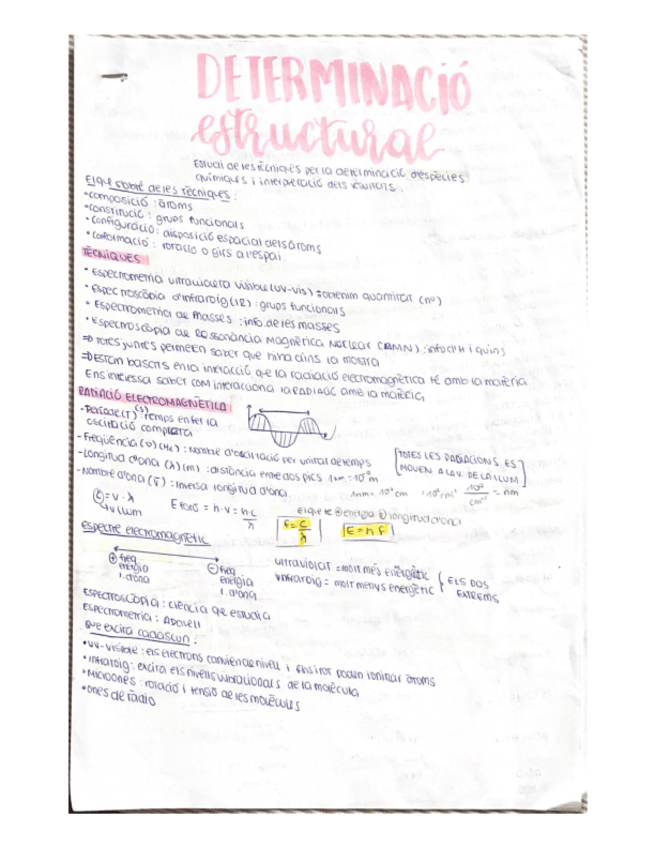 DETERMINACIÓ
estructural
Estudi de les tècniques per la determinació d'espècies
químiques i interpretació dels resultats.
El que s'obté de les tècniques:
•composició: àtoms
•constitució: grups funcionals
•configuració: disposició espacial dels àtoms
•conformació: rotació o girs a l'espai
TÈCNIQUES
• Espectrometria ultravioleta visible (UV-VIS): obtenim quantitat (nº)
• Espectroscòpia d'infraroig (IR): grups funcionals
• Espectrometria de masses: info de les masses
• Espectroscòpia de Ressonància Magnètica Nuclear (RMN): info d'H i quins
⇒ Totes juntes permeten saber que hi ha dins la mostra
⇒ Estan basats en la interacció que la radiació electromagnètica té amb la matèria
Ens interessa saber com interacciona la radiació amb la matèria
RADIACIÓ ELECTROMAGNÈTICA
- Període (T) (s): temps en fer la
oscil·lació completa
- Freqüència (ν) (Hz): nombre d'oscil·lació per unitat de temps
- Longitud d'ona (λ) (m): distància entre dos pics 1nm = 10⁻⁹m
[TOTES LES RADIACIONS ES
MOUEN A LA V. DE LA LLUM]
- Nombre d'ona (ν̄): inversa longitud d'ona
= nm
c = ν · λ
v llum
E fotó = h · ν = h · c/λ
El que té ⊕ energia ⊖ longitud d'ona
f = c/λ
E = h f
Espectre electromagnètic
⊕ freq
energia
l. d'ona
⊖ freq
energia
l. d'ona
ultraviolat = molt més energètic
infraroig = molt menys energètic
} ELS DOS
EXTREMS
ESPECTROSCÒPIA: ciència que estudia
ESPECTROMETRIA: APARELL
Que excita cadascun:
• UV-visible: els electrons canvien de nivell i fins i tot poden ionitzar àtoms
• Infraroig: excita els nivells vibracionals de la molècula
• Microones: rotació i tensió de les molècules
• Ones de ràdio